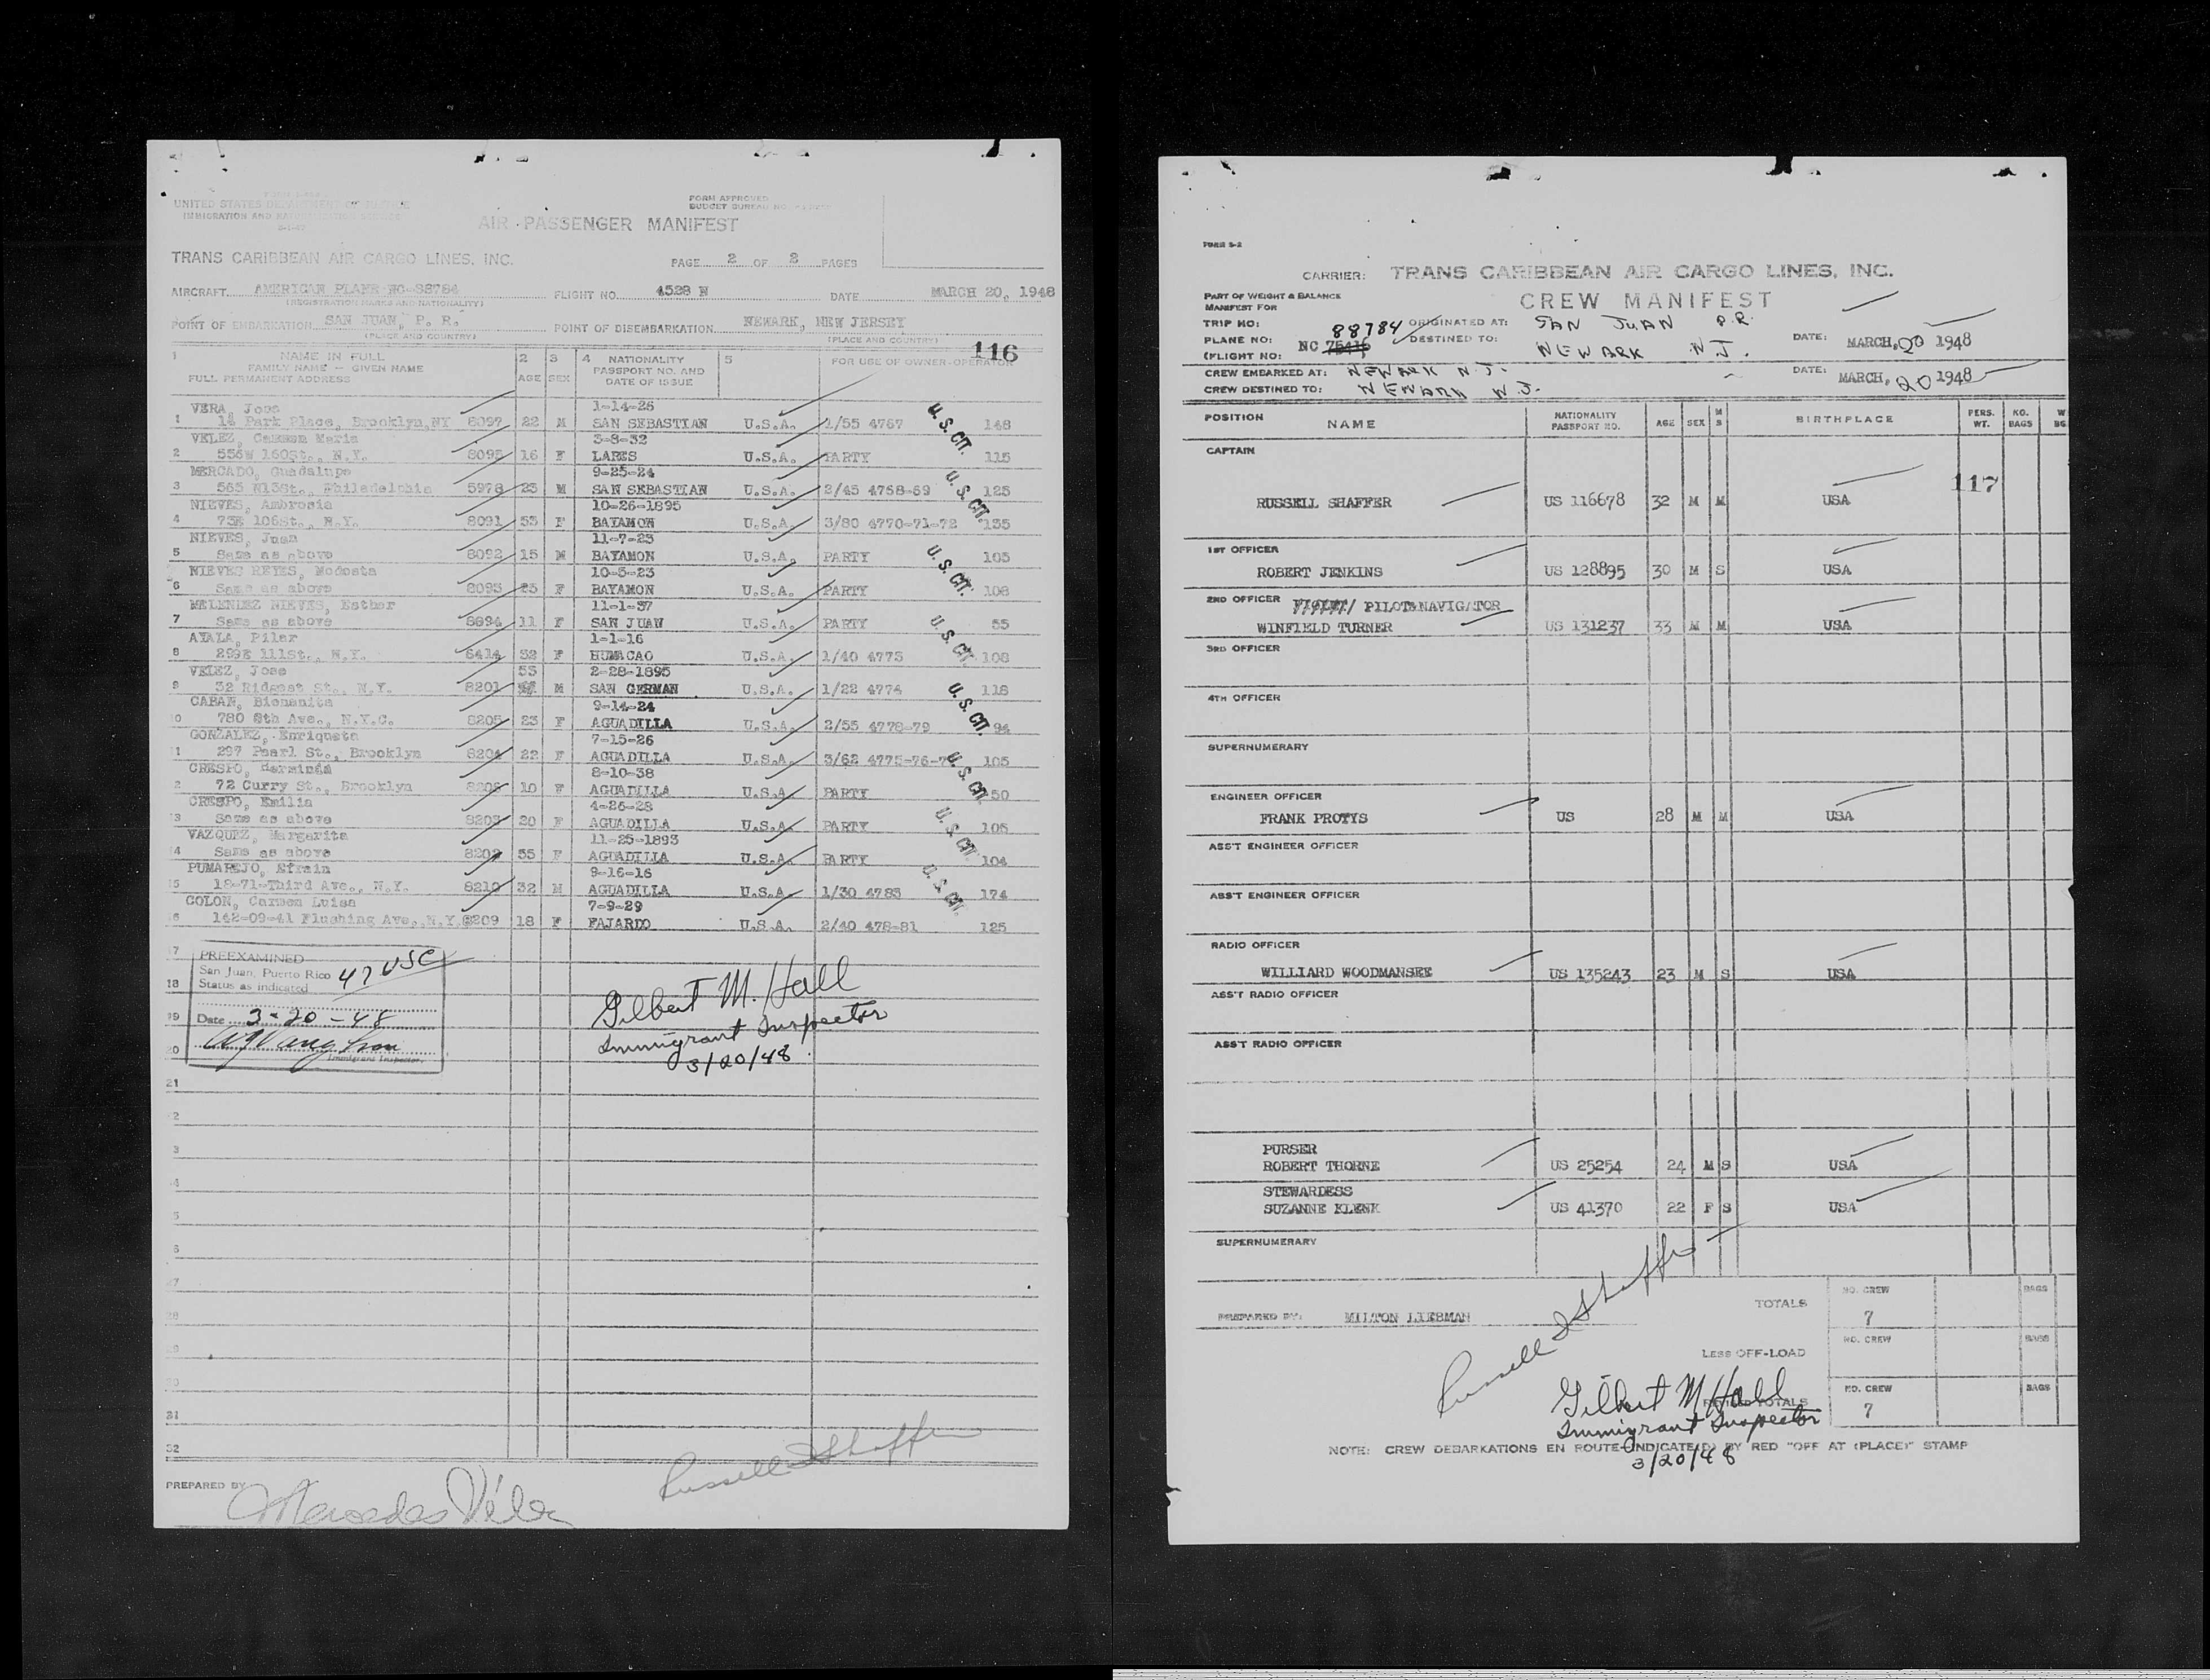 UNITED STATES DEPARTMENT OF JUSTICE
IMMIGRATION AND NATURALIZATION SERVICE
FORM APPROVED
BUDGET BUREAU NO.
AIR PASSENGER MANIFEST
TRANS CARIBBEAN AIR CARGO LINES, INC.
PAGE 2 OF 2 PAGES
AIRCRAFT AMERICAN PLANE NC-88784 FLIGHT NO. 4528 N DATE MARCH 20, 1948
(REGISTRATION MARKS AND NATIONALITY)
POINT OF EMBARKATION SAN JUAN, P. R. POINT OF DISEMBARKATION NEWARK, NEW JERSEY
(PLACE AND COUNTRY) (PLACE AND COUNTRY)
116
1 NAME IN FULL 2 3 4 NATIONALITY 5 FOR USE OF OWNER-OPERATOR
FAMILY NAME -- GIVEN NAME AGE SEX PASSPORT NO. AND
FULL PERMANENT ADDRESS DATE OF ISSUE
VERA, Jose 1-14-26
1 14 Park Place, Brooklyn, NY 8097 22 M SAN SEBASTIAN U.S.A. 1/55 4767 U.S. CIT. 148
VELEZ, Carmen Maria 3-8-32
2 556W 160St., N.Y. 8095 16 F LARES U.S.A. PARTY 115
MERCADO, Guadalupe 9-25-24
3 565 N13St., Philadelphia 5978 23 M SAN SEBASTIAN U.S.A. 2/45 4768-69 U.S. CIT. 125
NIEVES, Ambrosia 10-26-1895
4 73E 106St., N.Y. 8091 53 F BAYAMON U.S.A. 3/80 4770-71-72 135
NIEVES, Juan 11-7-23
5 Same as above 8092 15 M BAYAMON U.S.A. PARTY U.S. CIT. 105
NIEVES REYES, Modesta 10-3-23
6 Same as above 8093 25 F BAYAMON U.S.A. PARTY 108
MELENDEZ NIEVES, Esther 11-1-37
7 Same as above 8094 11 F SAN JUAN U.S.A. PARTY U.S. CIT. 55
AYALA, Pilar 1-1-16
8 299E 111St., N.Y. 6414 32 F HUMACAO U.S.A. 1/40 4773 108
VELEZ, Jose 53 2-28-1895
9 32 Ridgest St., N.Y. 8201 M SAN GERMAN U.S.A. 1/22 4774 U.S. CIT. 118
CABAN, Bienanita 9-14-24
10 780 8th Ave., N.Y.C. 8205 23 F AGUADILLA U.S.A. 2/55 4778-79 94
GONZALEZ, Enriqueta 7-15-26
11 297 Pearl St., Brooklyn 8204 22 F AGUADILLA U.S.A. 3/62 4775-76-7 U.S. CIT. 105
CRESPO, Herminda 8-10-38
2 72 Curry St., Brooklyn 10 F AGUADILLA U.S.A. PARTY 50
CRESPO, Emilia 4-26-28
13 Same as above 8203 20 F AGUADILLA U.S.A. PARTY U.S. CIT. 105
VAZQUEZ, Margarita 11-25-1893
14 Same as above 8202 55 F AGUADILLA U.S.A. PARTY 104
PUMAREJO, Efrain 9-16-16
15 18-71-Third Ave., N.Y. 8210 32 M AGUADILLA U.S.A. 1/30 4783 U.S. CIT. 174
COLON, Carmen Luisa 7-9-29
16 142-09-41 Flushing Ave., N.Y. 8209 18 F FAJARDO U.S.A. 2/40 478-81 125
17
PREEXAMINED
San Juan, Puerto Rico 47 USC
18 Status as indicated
19 Date 3-20-48
20 Immigrant Inspector.
Gilbert M. Hall
Immigrant Inspector
3/20/48
21
2
3
4
5
6
27
28
29
30
31
32
Russell Shaffer
PREPARED BY Mercedes Vélez
FORM S-2
CARRIER: TRANS CARIBBEAN AIR CARGO LINES, INC.
PART OF WEIGHT & BALANCE
MANIFEST FOR
CREW MANIFEST
TRIP NO: 88784 ORIGINATED AT: SAN JUAN P.R.
PLANE NO: NC 75416 DESTINED TO: NEWARK N.J. DATE: MARCH, 20 1948
(FLIGHT NO:
CREW EMBARKED AT: NEWARK N.J. DATE: MARCH, 20 1948
CREW DESTINED TO: NEWARK N.J.
POSITION NAME NATIONALITY PASSPORT NO. AGE SEX M S BIRTHPLACE PERS. WT. NO. BAGS W BG.
CAPTAIN
117
RUSSELL SHAFFER US 116678 32 M M USA
1ST OFFICER
ROBERT JENKINS US 128895 30 M S USA
2ND OFFICER PILOT&NAVIGATOR
WINFIELD TURNER US 131237 33 M M USA
3RD OFFICER
4TH OFFICER
SUPERNUMERARY
ENGINEER OFFICER
FRANK PROTYS US 28 M M USA
ASS'T ENGINEER OFFICER
ASS'T ENGINEER OFFICER
RADIO OFFICER
WILLIARD WOODMANSEE US 135243 23 M S USA
ASS'T RADIO OFFICER
ASS'T RADIO OFFICER
PURSER
ROBERT THORNE US 25254 24 M S USA
STEWARDESS
SUZANNE KLENK US 41370 22 F S USA
SUPERNUMERARY
PREPARED BY: MILTON LIEBMAN
Russell Shaffer
TOTALS NO. CREW 7 BAGS
LESS OFF-LOAD NO. CREW BAGS
TOTALS NO. CREW 7 BAGS
Gilbert M Hall
Immigrant Inspector
NOTE: CREW DEBARKATIONS EN ROUTE INDICATE(D) BY RED "OFF AT (PLACE)" STAMP
3/20/48